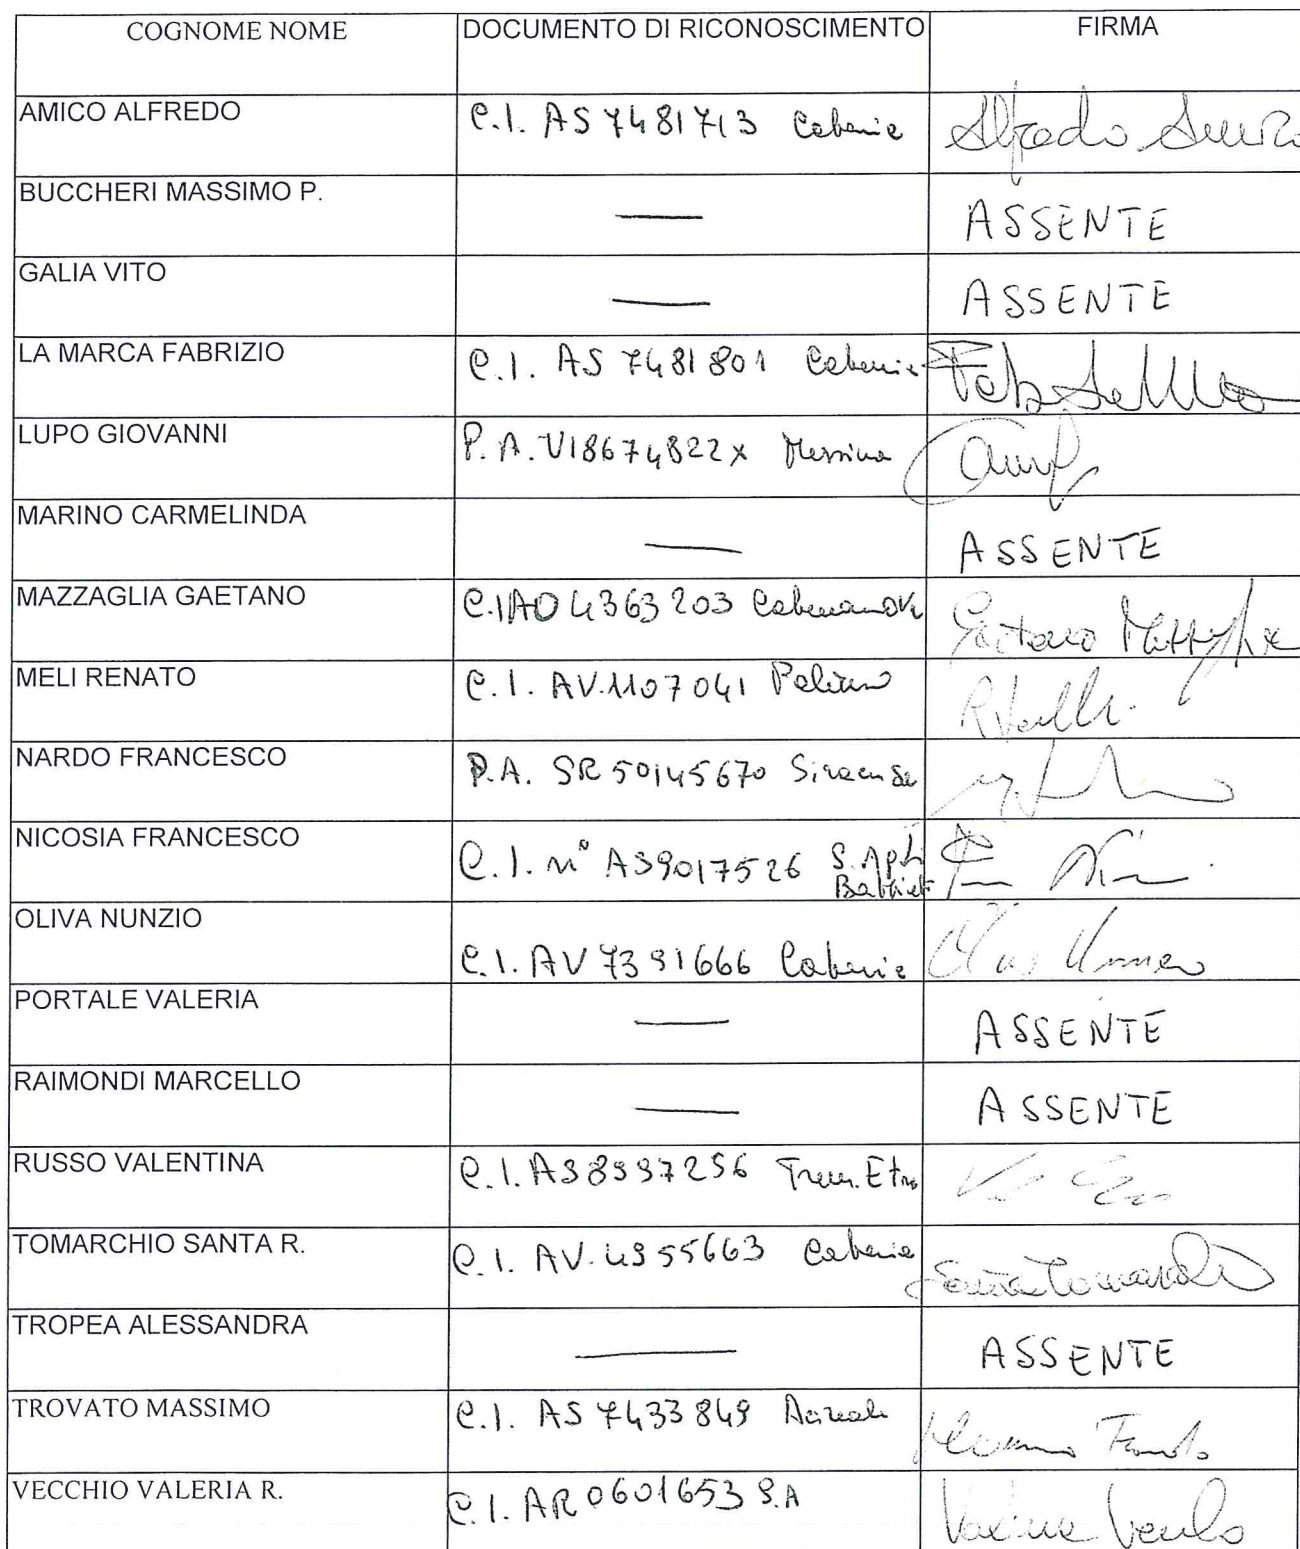 COGNOME NOME DOCUMENTO DI RICONOSCIMENTO FIRMA
AMICO ALFREDO C.I. AS 7481713 Catania Alfredo Amico
BUCCHERI MASSIMO P. — ASSENTE
GALIA VITO — ASSENTE
LA MARCA FABRIZIO C.I. AS 7481801 Catania
LUPO GIOVANNI P.A. U18674822X Messina
MARINO CARMELINDA — ASSENTE
MAZZAGLIA GAETANO C.I AO 4363203 Gaetano
MELI RENATO C.I. AV.1107041
NARDO FRANCESCO P.A. SR 50145670 Siracusa
NICOSIA FRANCESCO C.I. n° AS9017526
OLIVA NUNZIO C.I. AV 7391666 Catania
PORTALE VALERIA — ASSENTE
RAIMONDI MARCELLO — ASSENTE
RUSSO VALENTINA C.I. AS8997256
TOMARCHIO SANTA R. C.I. AV. 4955663 Catania
TROPEA ALESSANDRA — ASSENTE
TROVATO MASSIMO C.I. AS 7433849 Acireale
VECCHIO VALERIA R. C.I. AR 0601653 S.A